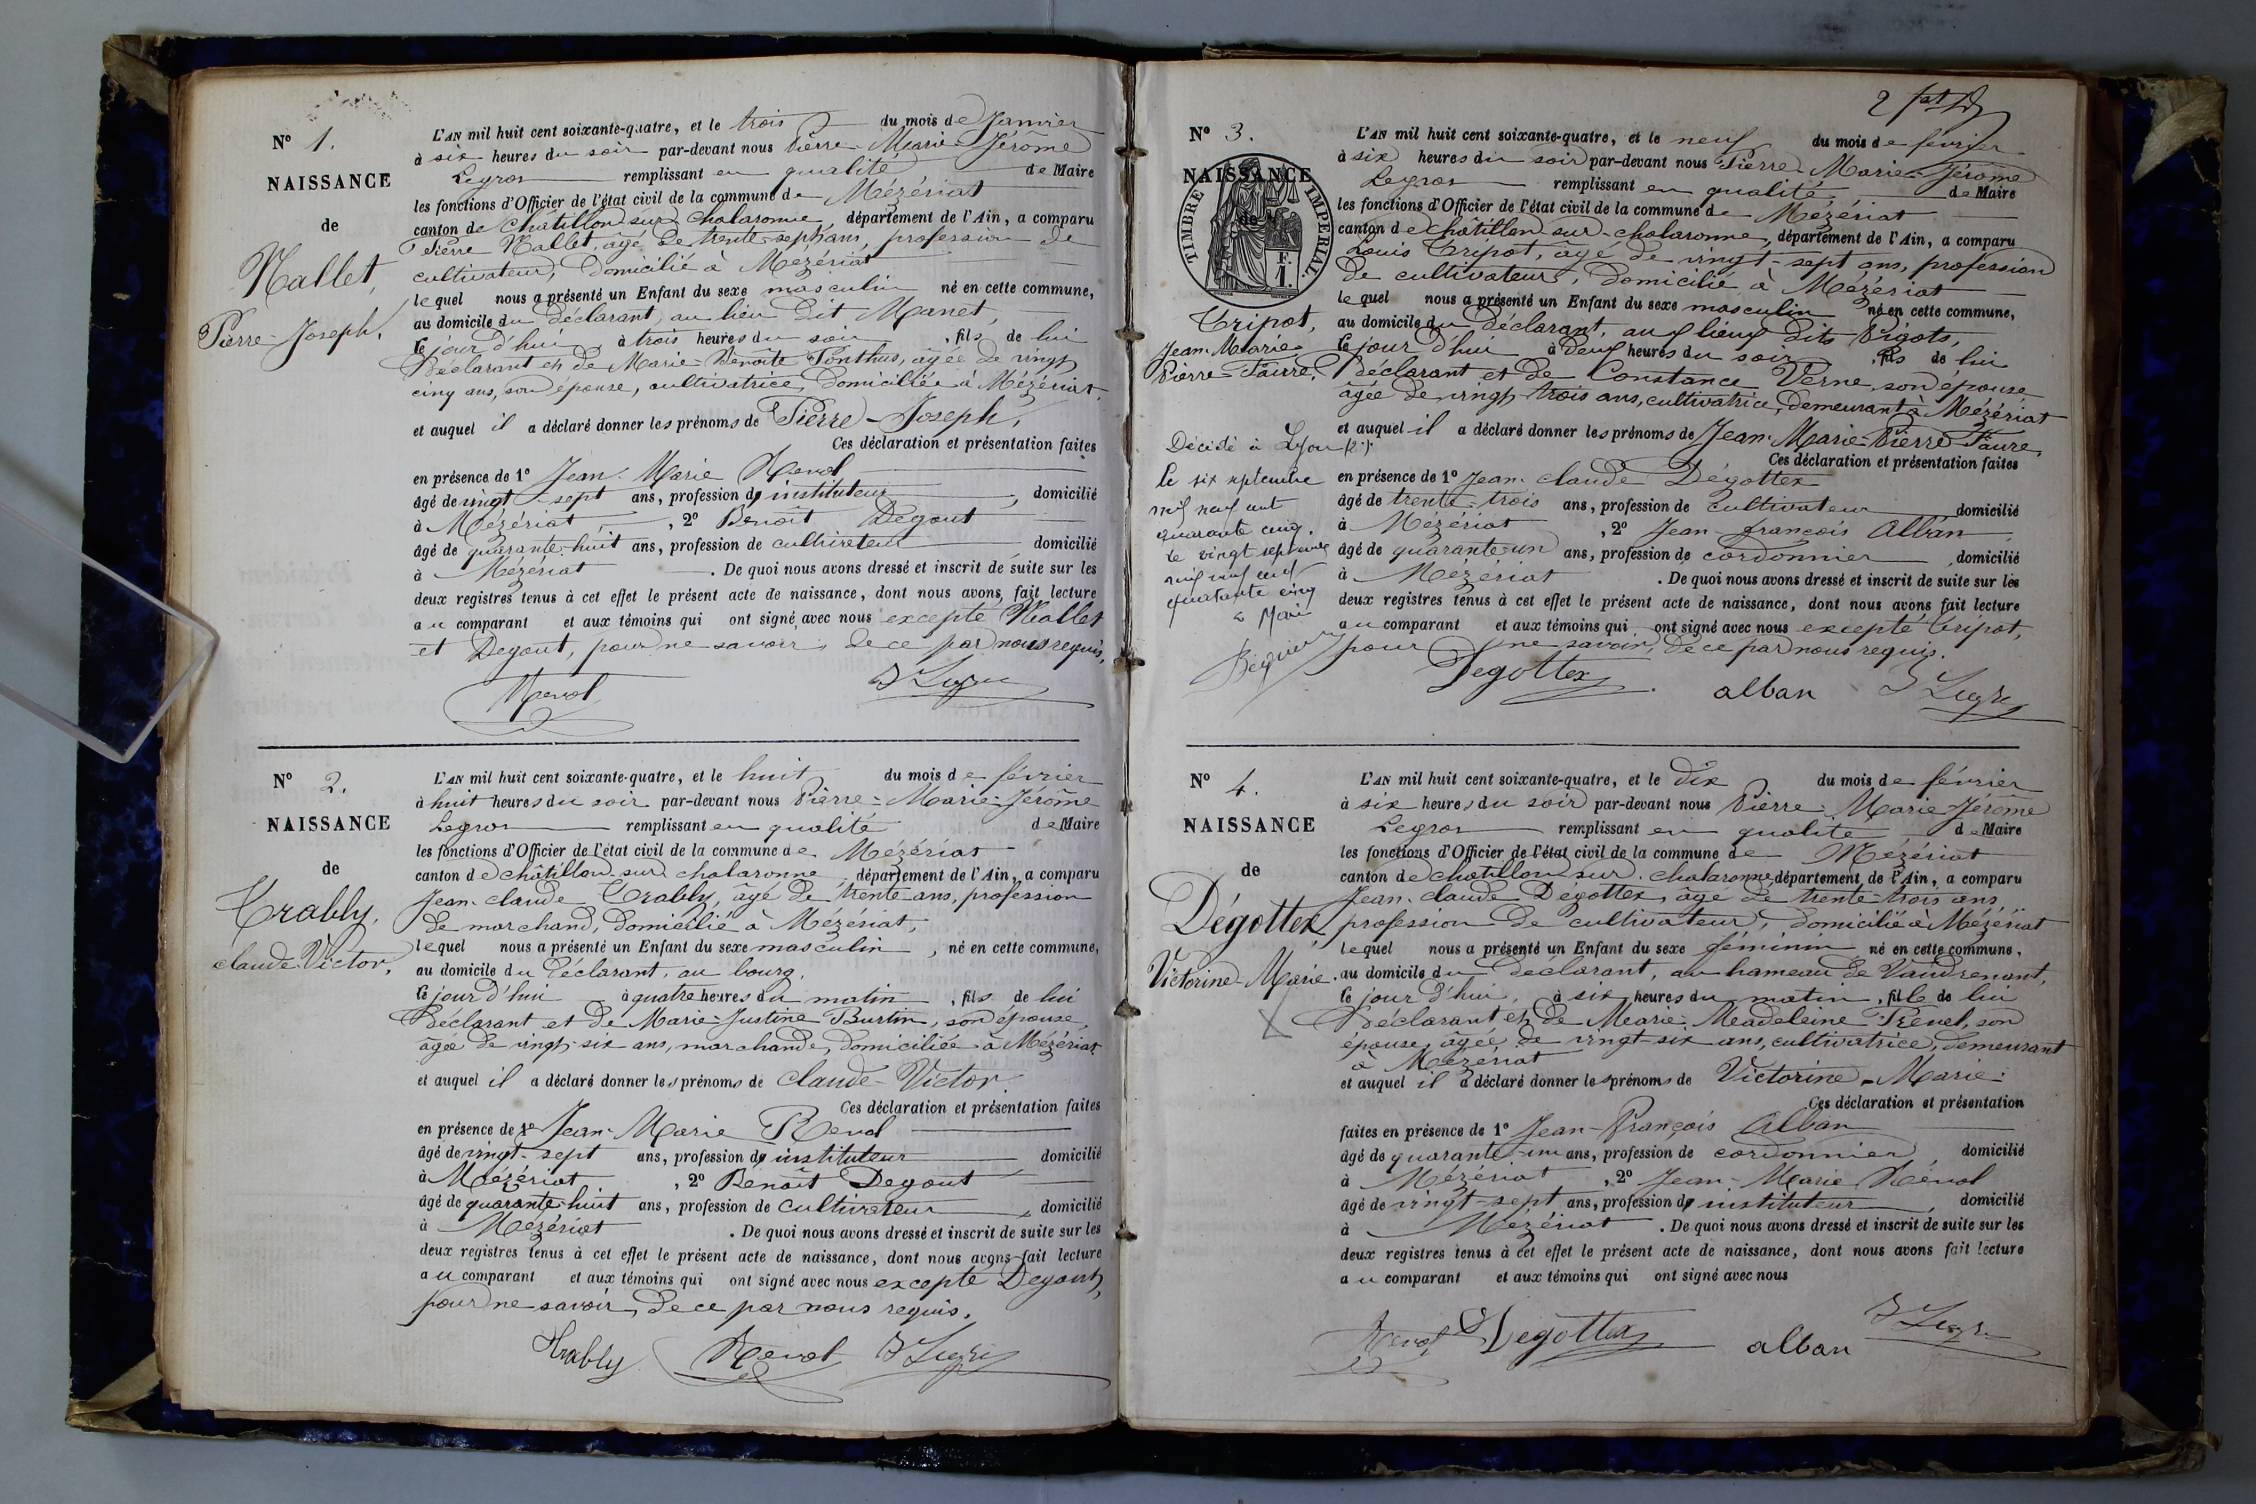 N° 1.
NAISSANCE
de
Nallet,
Pierre-Joseph.
L'AN mil huit cent soixante-quatre, et le trois du mois de Janvier
à six heures du soir par-devant nous Pierre-Marie-Jérôme
Legros remplissant en qualité de Maire
les fonctions d'Officier de l'état civil de la commune de Mézériat
canton de Châtillon sur chalaronne, département de l'Ain, a comparu
Pierre Nallet, âgé de trente-sept ans, profession de
cultivateur, domicilié à Mézériat
lequel nous a présenté un Enfant du sexe masculin né en cette commune,
au domicile du déclarant, au lieu dit Manet,
le jour d'hui à trois heures du soir, fils de lui
Déclarant et de Marie-Benoîte Ponthus, âgée de vingt
cinq ans, son épouse, cultivatrice, domiciliée à Mézériat.
et auquel il a déclaré donner les prénoms de Pierre-Joseph,
Ces déclaration et présentation faites
en présence de 1° Jean-Marie Revol
âgé de vingt-sept ans, profession d' instituteur, domicilié
à Mézériat, 2° Benoît Degout
âgé de quarante-huit ans, profession de cultivateur domicilié
à Mézériat. De quoi nous avons dressé et inscrit de suite sur les
deux registres tenus à cet effet le présent acte de naissance, dont nous avons fait lecture
au comparant et aux témoins qui ont signé avec nous excepté Nallet
et Degout, pour ne savoir, de ce par nous requis.
Revol
N° 2.
NAISSANCE
de
Trably,
claude-Victor.
L'AN mil huit cent soixante-quatre, et le huit du mois de février
à huit heures du soir par-devant nous Pierre-Marie-Jérôme
Legros remplissant en qualité de Maire
les fonctions d'Officier de l'état civil de la commune de Mézériat
canton de châtillon sur chalaronne, département de l'Ain, a comparu
Jean-claude Trably, âgé de trente ans, profession
de marchand, domicilié à Mézériat,
lequel nous a présenté un Enfant du sexe masculin, né en cette commune,
au domicile du déclarant, au bourg,
le jour d'hui à quatre heures du matin, fils de lui
Déclarant et de Marie-Justine Burtin, son épouse,
âgée de vingt-six ans, marchande, domiciliée à Mézériat
et auquel il a déclaré donner les prénoms de claude-Victor.
Ces déclaration et présentation faites
en présence de 1° Jean-Marie Revol
âgé de vingt-sept ans, profession d' instituteur domicilié
à Mézériat, 2° Benoît Degout
âgé de quarante-huit ans, profession de cultivateur, domicilié
à Mézériat. De quoi nous avons dressé et inscrit de suite sur les
deux registres tenus à cet effet le présent acte de naissance, dont nous avons fait lecture
au comparant et aux témoins qui ont signé avec nous excepté Degout,
pour ne savoir, de ce par nous requis.
Trably Revol
2
N° 3.
NAISSANCE
de
TIMBRE IMPERIAL
F.
1.
Tripot,
Jean-Marie
Pierre-Faure.
Décédé à Lyon (2e)
le six septembre
mil neuf cent
quarante cinq.
Le vingt septembre
mil neuf cent
quarante cinq
L'AN mil huit cent soixante-quatre, et le neuf du mois de février
à six heures du soir par-devant nous Pierre-Marie-Jérôme
Legros remplissant en qualité de Maire
les fonctions d'Officier de l'état civil de la commune de Mézériat
canton de châtillon sur chalaronne, département de l'Ain, a comparu
Louis Tripot, âgé de vingt-sept ans, profession
de cultivateur, domicilié à Mézériat
lequel nous a présenté un Enfant du sexe masculin né en cette commune,
au domicile du déclarant, au lieu dit Pigots,
le jour d'hui à deux heures du soir, fils de lui
déclarant et de Constance Verne, son épouse
âgée de vingt-trois ans, cultivatrice, demeurant à Mézériat
et auquel il a déclaré donner les prénoms de Jean-Marie-Pierre Faure,
Ces déclaration et présentation faites
en présence de 1° Jean-claude Dégottex
âgé de trente-trois ans, profession de cultivateur domicilié
à Mézériat, 2° Jean-françois Alban
âgé de quarante-un ans, profession de cordonnier, domicilié
à Mézériat. De quoi nous avons dressé et inscrit de suite sur les
deux registres tenus à cet effet le présent acte de naissance, dont nous avons fait lecture
au comparant et aux témoins qui ont signé avec nous excepté Tripot,
pour ne savoir, de ce par nous requis.
Degottex alban
N° 4.
NAISSANCE
de
Dégottex,
Victorine-Marie.
L'AN mil huit cent soixante-quatre, et le dix du mois de février
à six heures du soir par-devant nous Pierre-Marie-Jérôme
Legros remplissant en qualité de Maire
les fonctions d'Officier de l'état civil de la commune de Mézériat
canton de chatillon sur chalaronne, département de l'Ain, a comparu
Jean-claude Dégottex, âgé de trente-trois ans,
profession de cultivateur, domicilié à Mézériat
lequel nous a présenté un Enfant du sexe féminin né en cette commune,
au domicile du déclarant, au hameau de Vaudrenant,
le jour d'hui, à six heures du matin, fille de lui
Déclarant et de Marie-Madeleine Revel, son
épouse, âgée de vingt-six ans, cultivatrice, demeurant
à Mézériat
et auquel il a déclaré donner les prénoms de Victorine-Marie.
Ces déclaration et présentation
faites en présence de 1° Jean-François Alban
âgé de quarante-un ans, profession de cordonnier, domicilié
à Mézériat, 2° Jean-Marie Révol
âgé de vingt-sept ans, profession d' instituteur, domicilié
à Mézériat. De quoi nous avons dressé et inscrit de suite sur les
deux registres tenus à cet effet le présent acte de naissance, dont nous avons fait lecture
au comparant et aux témoins qui ont signé avec nous
Revol Degottex alban